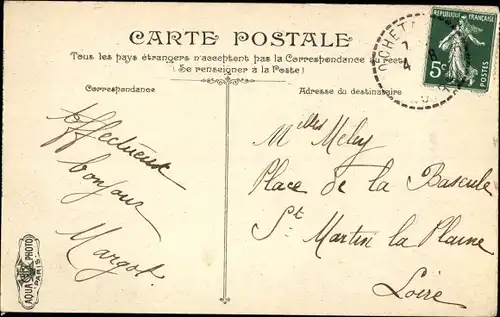 CARTE POSTALE
Tous les pays étrangers n'acceptent pas la Correspondance au recto
(Se renseigner à la Poste)
Correspondance
Adresse du destinataire
Affectueux
bonjour
Margot.
Mlles Mely
Place de la Bascule
St Martin la Plaine
Loire
REPUBLIQUE FRANÇAISE
5c
POSTES
AQUA PHOTO
PARIS